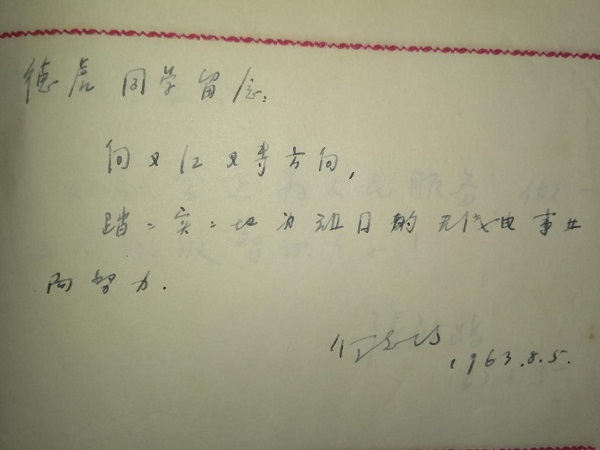 德虎同学留念:
向又红又专方向,
踏二实二地为祖国的无线电事业
而努力.
1963.8.5.